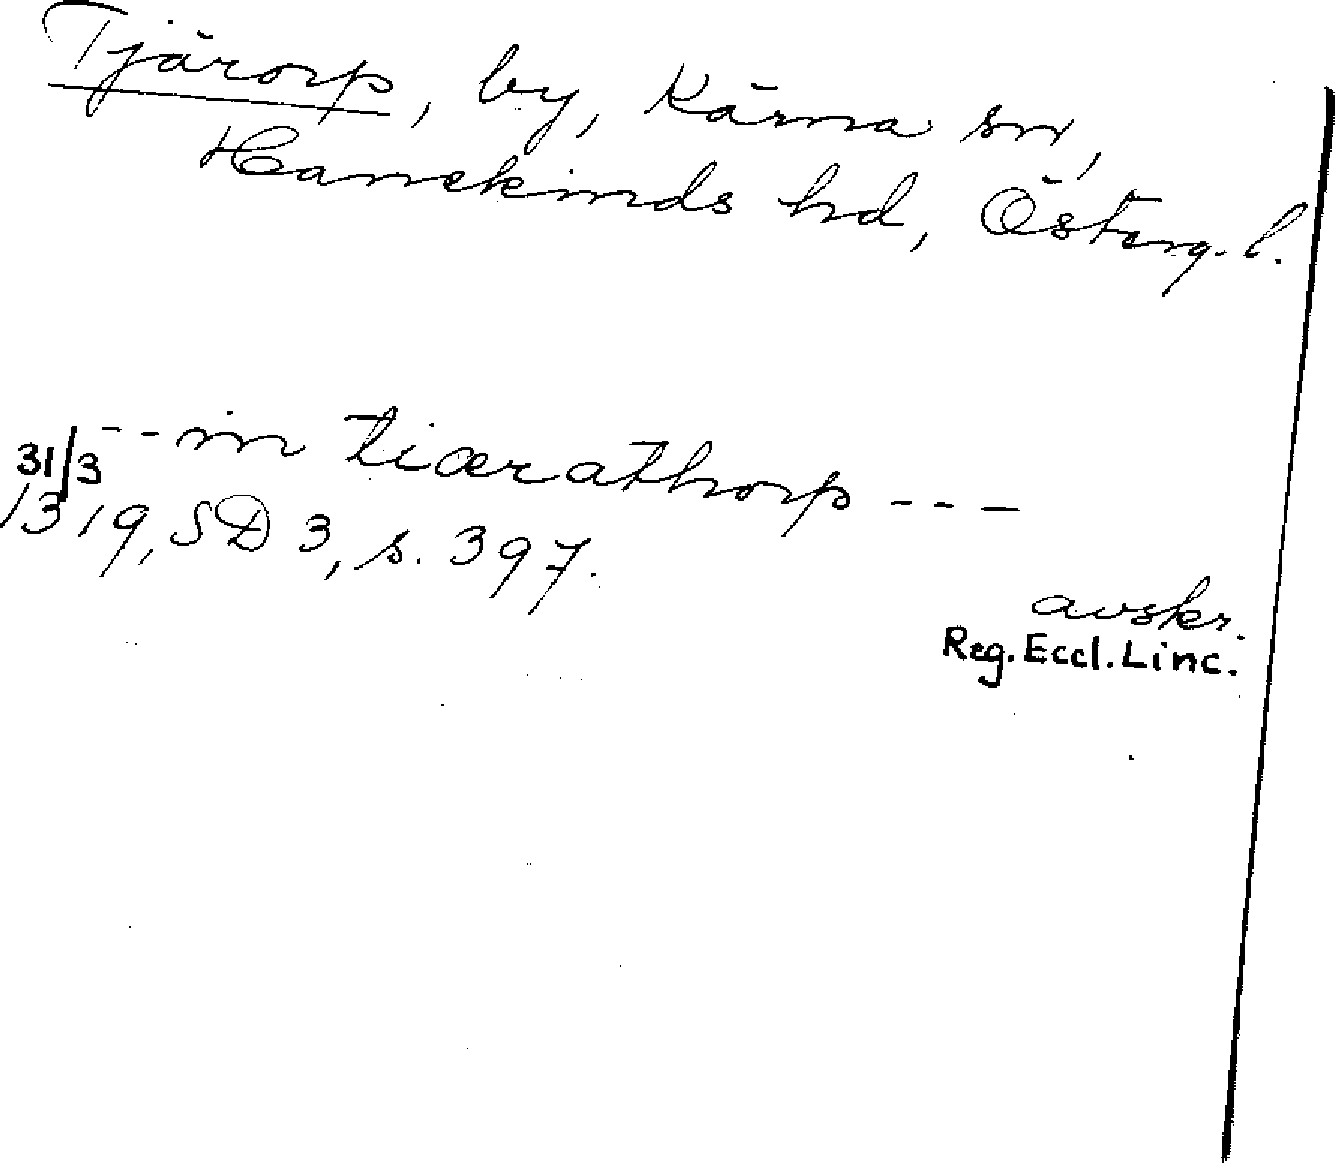 Tjärorp, by, Kärna sn,
Hanekinds hd, Österg. l.
-- in tiærathorp ---
31/3
1319, SD 3, s. 397.
avskr.
Reg. Eccl. Linc.